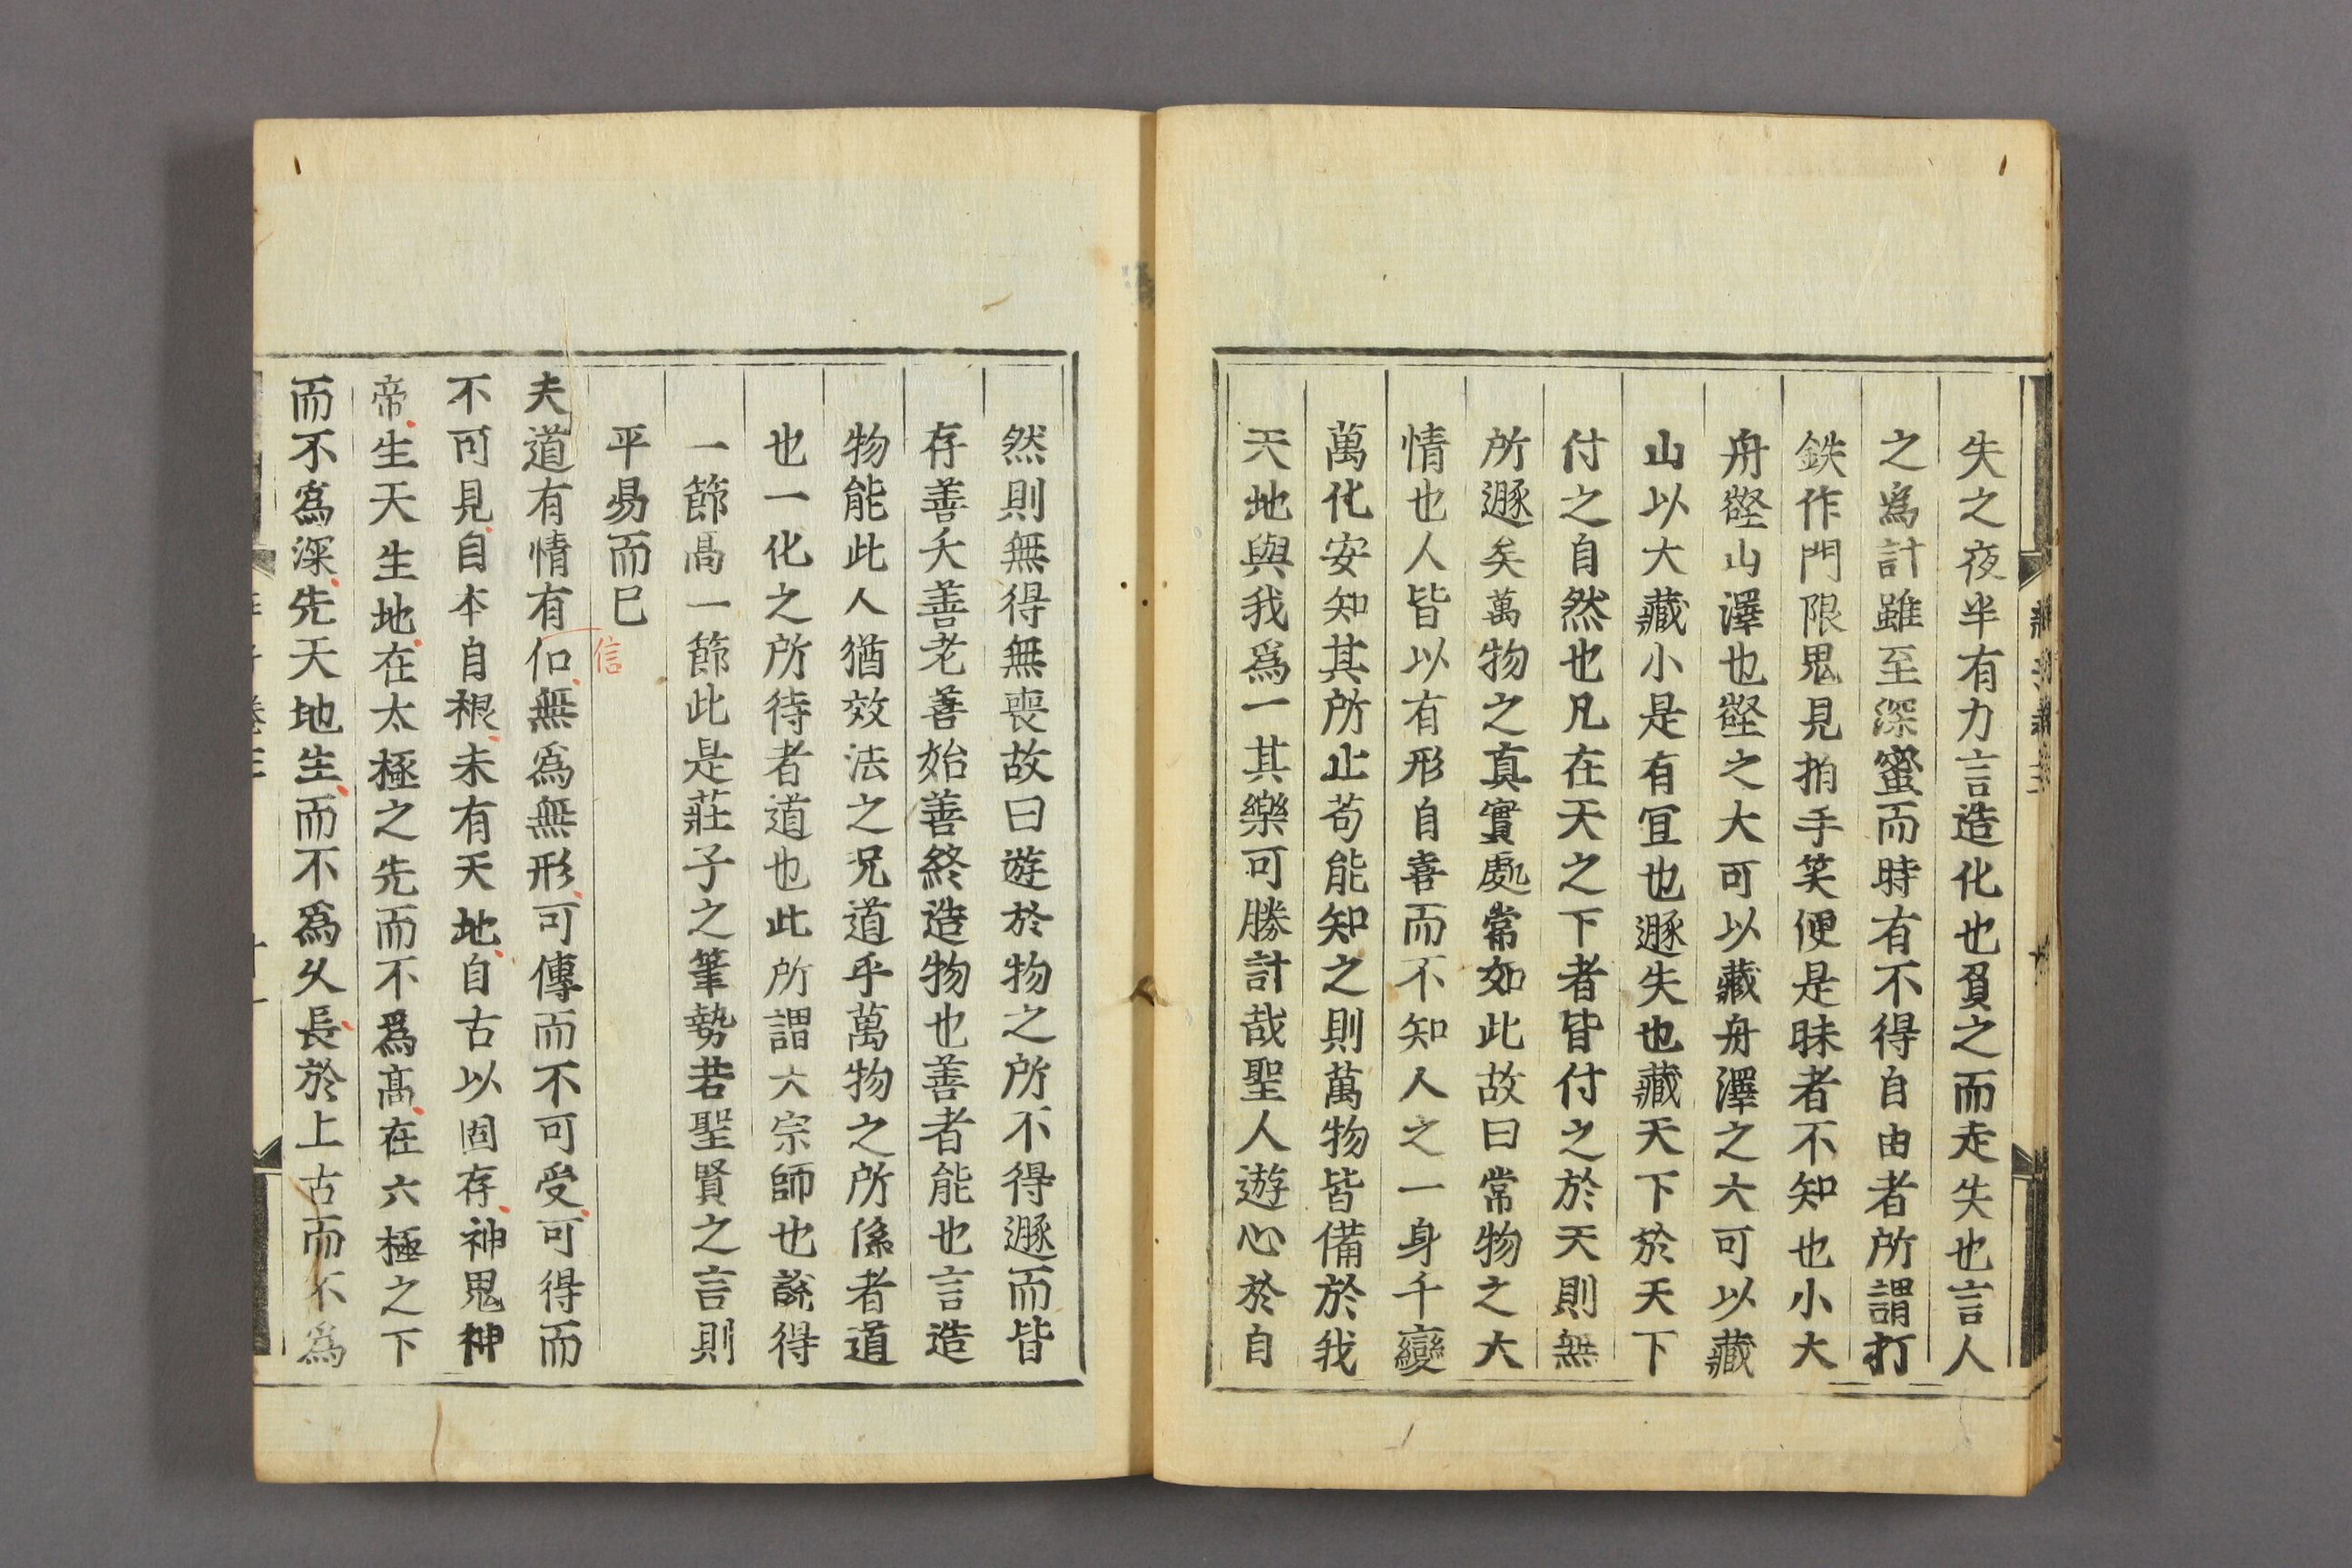 失之夜半有力言造化也負之而走失也言人
之爲計雖至深蜜而時有不得自由者所謂打
鉄作門限鬼見拍手笑便是昧者不知也小大
舟壑山澤也壑之大可以藏舟澤之大可以藏
山以大藏小是有冝也遯失也藏天下於天下
付之自然也凡在天之下者皆付之於天則無
所遯矣萬物之真實處常如此故曰常物之大
情也人皆以有形自喜而不知人之一身千變
萬化安知其所止苟能知之則萬物皆備於我
天地與我爲一其樂可勝計哉聖人遊心於自
然則無得無喪故曰遊於物之所不得遯而皆
存善夭善老善始善終造物也善者能也言造
物能此人猶效法之况道乎萬物之所係者道
也一化之所待者道也此所謂大宗師也說得
一節高一節此是莊子之筆勢若聖賢之言則
平易而已
夫道有情有伩無爲無形可傳而不可受可得而
信
不可見自本自根未有天地自古以固存神鬼神
帝生天生地在太極之先而不爲高在六極之下
而不爲深先天地生而不爲久長於上古而不爲